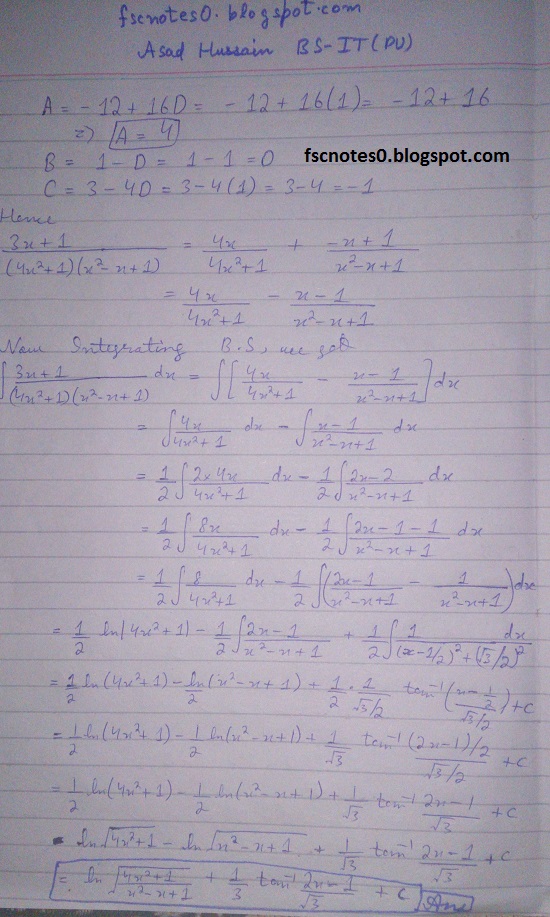 fscnotes0.blogspot.com
Asad Hussain BS-IT(PU)
A = -12 + 16D = -12 + 16(1) = -12 + 16
=> A = 4
B = 1 - D = 1 - 1 = 0
fscnotes0.blogspot.com
C = 3 - 4D = 3 - 4(1) = 3 - 4 = -1
Hence
(3x+1)/((4x²+1)(x²-x+1)) = 4x/(4x²+1) + (-x+1)/(x²-x+1)
= 4x/(4x²+1) - (x-1)/(x²-x+1)
Now Integrating B.S, we get
∫ (3x+1)/((4x²+1)(x²-x+1)) dx = ∫ [4x/(4x²+1) - (x-1)/(x²-x+1)] dx
= ∫ 4x/(4x²+1) dx - ∫ (x-1)/(x²-x+1) dx
= 1/2 ∫ 2×4x/(4x²+1) dx - 1/2 ∫ (2x-2)/(x²-x+1) dx
= 1/2 ∫ 8x/(4x²+1) dx - 1/2 ∫ (2x-1-1)/(x²-x+1) dx
= 1/2 ∫ 8/(4x²+1) dx - 1/2 ∫ ((2x-1)/(x²-x+1) - 1/(x²-x+1)) dx
= 1/2 ln(4x²+1) - 1/2 ∫ (2x-1)/(x²-x+1) + 1/2 ∫ 1/((x-1/2)²+(√3/2)²) dx
= 1/2 ln(4x²+1) - ln/2 (x²-x+1) + 1/2 · 1/(√3/2) tan⁻¹((x-1/2)/(√3/2)) + c
= 1/2 ln(4x²+1) - 1/2 ln(x²-x+1) + 1/√3 tan⁻¹ ((2x-1)/2)/(√3/2) + c
= 1/2 ln(4x²+1) - 1/2 ln(x²-x+1) + 1/√3 tan⁻¹ (2x-1)/√3 + c
= ln√(4x²+1) - ln√(x²-x+1) + 1/√3 tan⁻¹ (2x-1)/√3 + c
= ln √((4x²+1)/(x²-x+1)) + 1/3 tan⁻¹ (2x-1)/√3 + c Ans